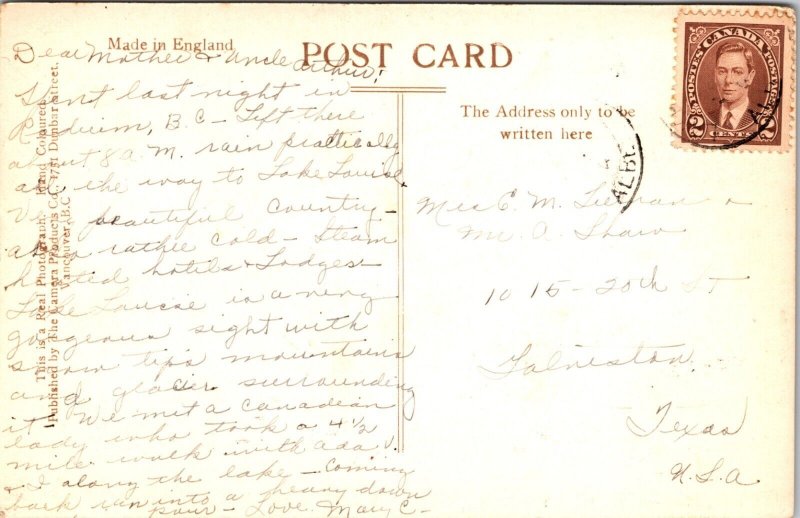 Made in England
POST CARD
Dear Mother & Uncle Arthur;
Spent last night in
Radium, B.C - Left there
about 8 A.M. rain practically
all the way to Lake Louise
Very beautiful country -
also rather cold - Steam
heated hotels & Lodges -
Lake Louise is a very
gorgeous sight with
snow tips mountains
and glacier surrounding
it. We met a Canadian
lady who took a 4 1/2
mile walk with Ada
& I along the lake - Coming
back ran into a heavy down
pour - Love Mary C -
This is a Real Photograph, Hand Coloured.
Published by The Camera Products Co., 1751 Dunbar Street,
Vancouver, B.C.
The Address only to be
written here
Mrs C. M.
Mr. A. Shaw
1015 - 20th St
Galveston
Texas
U.S.A
POSTES CANADA POSTAGE
2 CENTS 2
ALBE